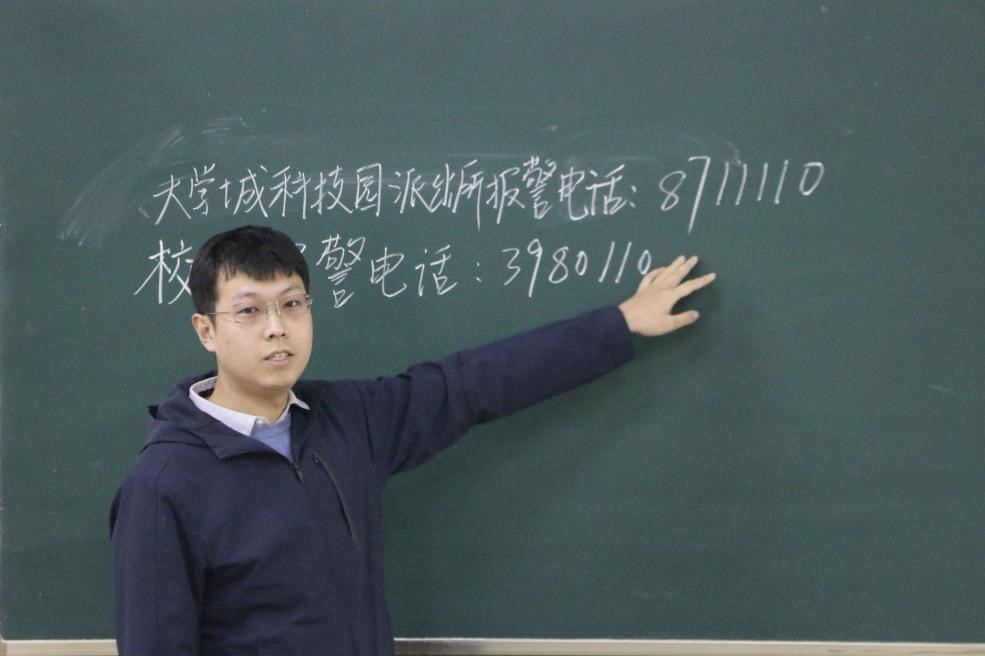 大学城科技园派出所报警电话：8711110
校 警电话：3980110